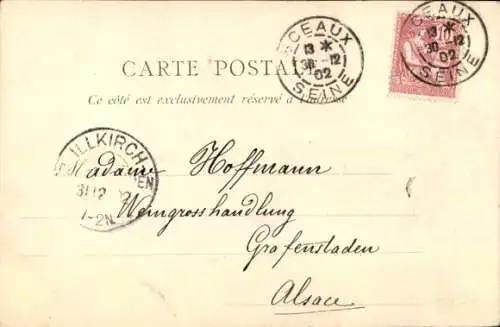 SCEAUX
13 *
30 -12
02
SEINE
SCEAUX
13 *
30 -12
02
SEINE
10
CARTE POSTALE
Ce côté est exclusivement réservé à l'adresse
ILLKIRCH
31 12
1-2N
Madame Hoffmann
Weingrosshandlung
Grafenstaden
Alsace